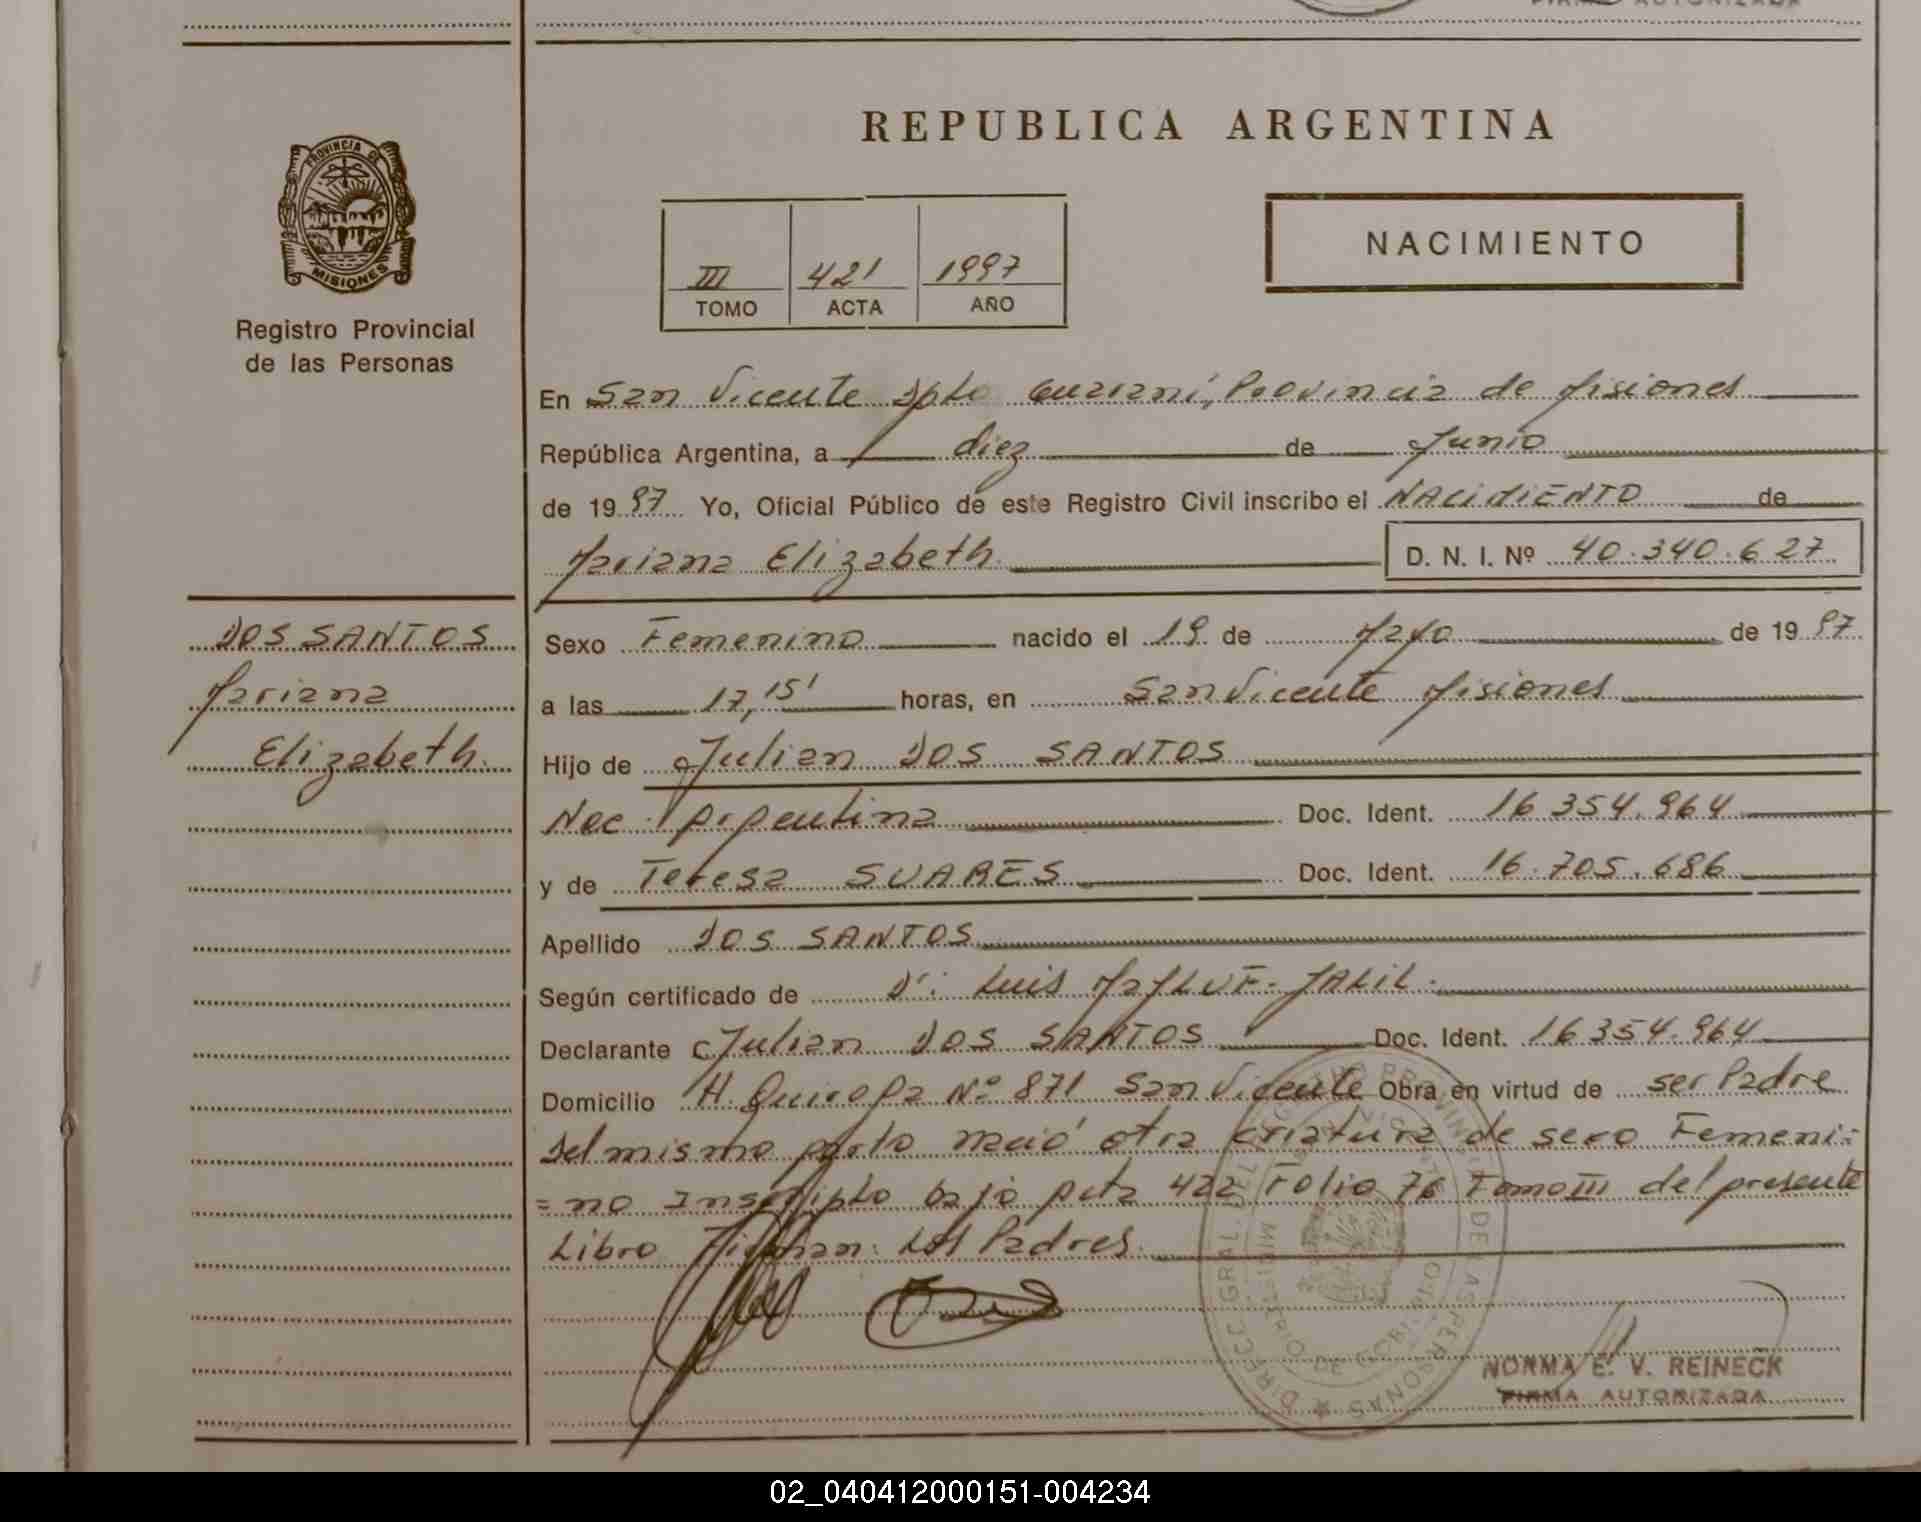 FIRMA AUTORIZADA
REPUBLICA ARGENTINA
PROVINCIA DE
MISIONES
Registro Provincial
de las Personas
III 421 1997
TOMO ACTA AÑO
NACIMIENTO
En San Vicente Dpto Guaraní, Provincia de Misiones
República Argentina, a diez de Junio
de 1997 Yo, Oficial Público de este Registro Civil inscribo el NACIMIENTO de
Mariana Elizabeth. D. N. I. Nº 40.340.627
DOS SANTOS
Mariana
Elizabeth.
Sexo Femenino nacido el 19 de Mayo de 1997
a las 17,15' horas, en San Vicente Misiones
Hijo de Julian DOS SANTOS
Nac. Argentina Doc. Ident. 16.354.964
y de Teresa SUARES Doc. Ident. 16.705.686
Apellido DOS SANTOS
Según certificado de Dr: Luis JALIL.
Declarante Julian DOS SANTOS Doc. Ident. 16.354.964
Domicilio H. Quiroga Nº 871 San Vicente Obra en virtud de ser Padre
Del mismo parto nació otra criatura de sexo Femeni=
=no Inscripto bajo Acta 422 Folio 76 Tomo III del presente
Libro Firman: Los Padres.
DIRECC. GRAL. DEL REGISTRO PROVINCIAL DE LAS PERSONAS
MINISTERIO DE GOBIERNO
NORMA E. V. REINECK
FIRMA AUTORIZADA
02_040412000151-004234